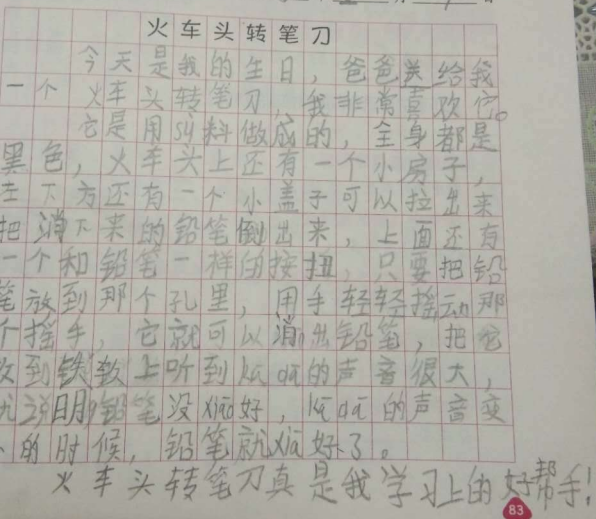 火车头转笔刀
今天是我的生日，爸爸送给我
一个火车头转笔刀，我非常喜欢它。
它是用sù料做成的，全身都是
黑色，火车头上还有一个小房子，
左下方还有一个小盖子可以拉出来
把消下来的铅笔倒出来，上面还有
一个和铅笔一样的按扭，只要把铅
笔放到那个孔里，用手轻轻摇动那
个摇手，它就可以消出铅笔，把它
放到铁轨上听到kā dā的声音很大，
说明铅笔没xiāo好，kā dā的声音变
的时候，铅笔就xiā好了。
火车头转笔刀真是我学习上的好帮手！
83